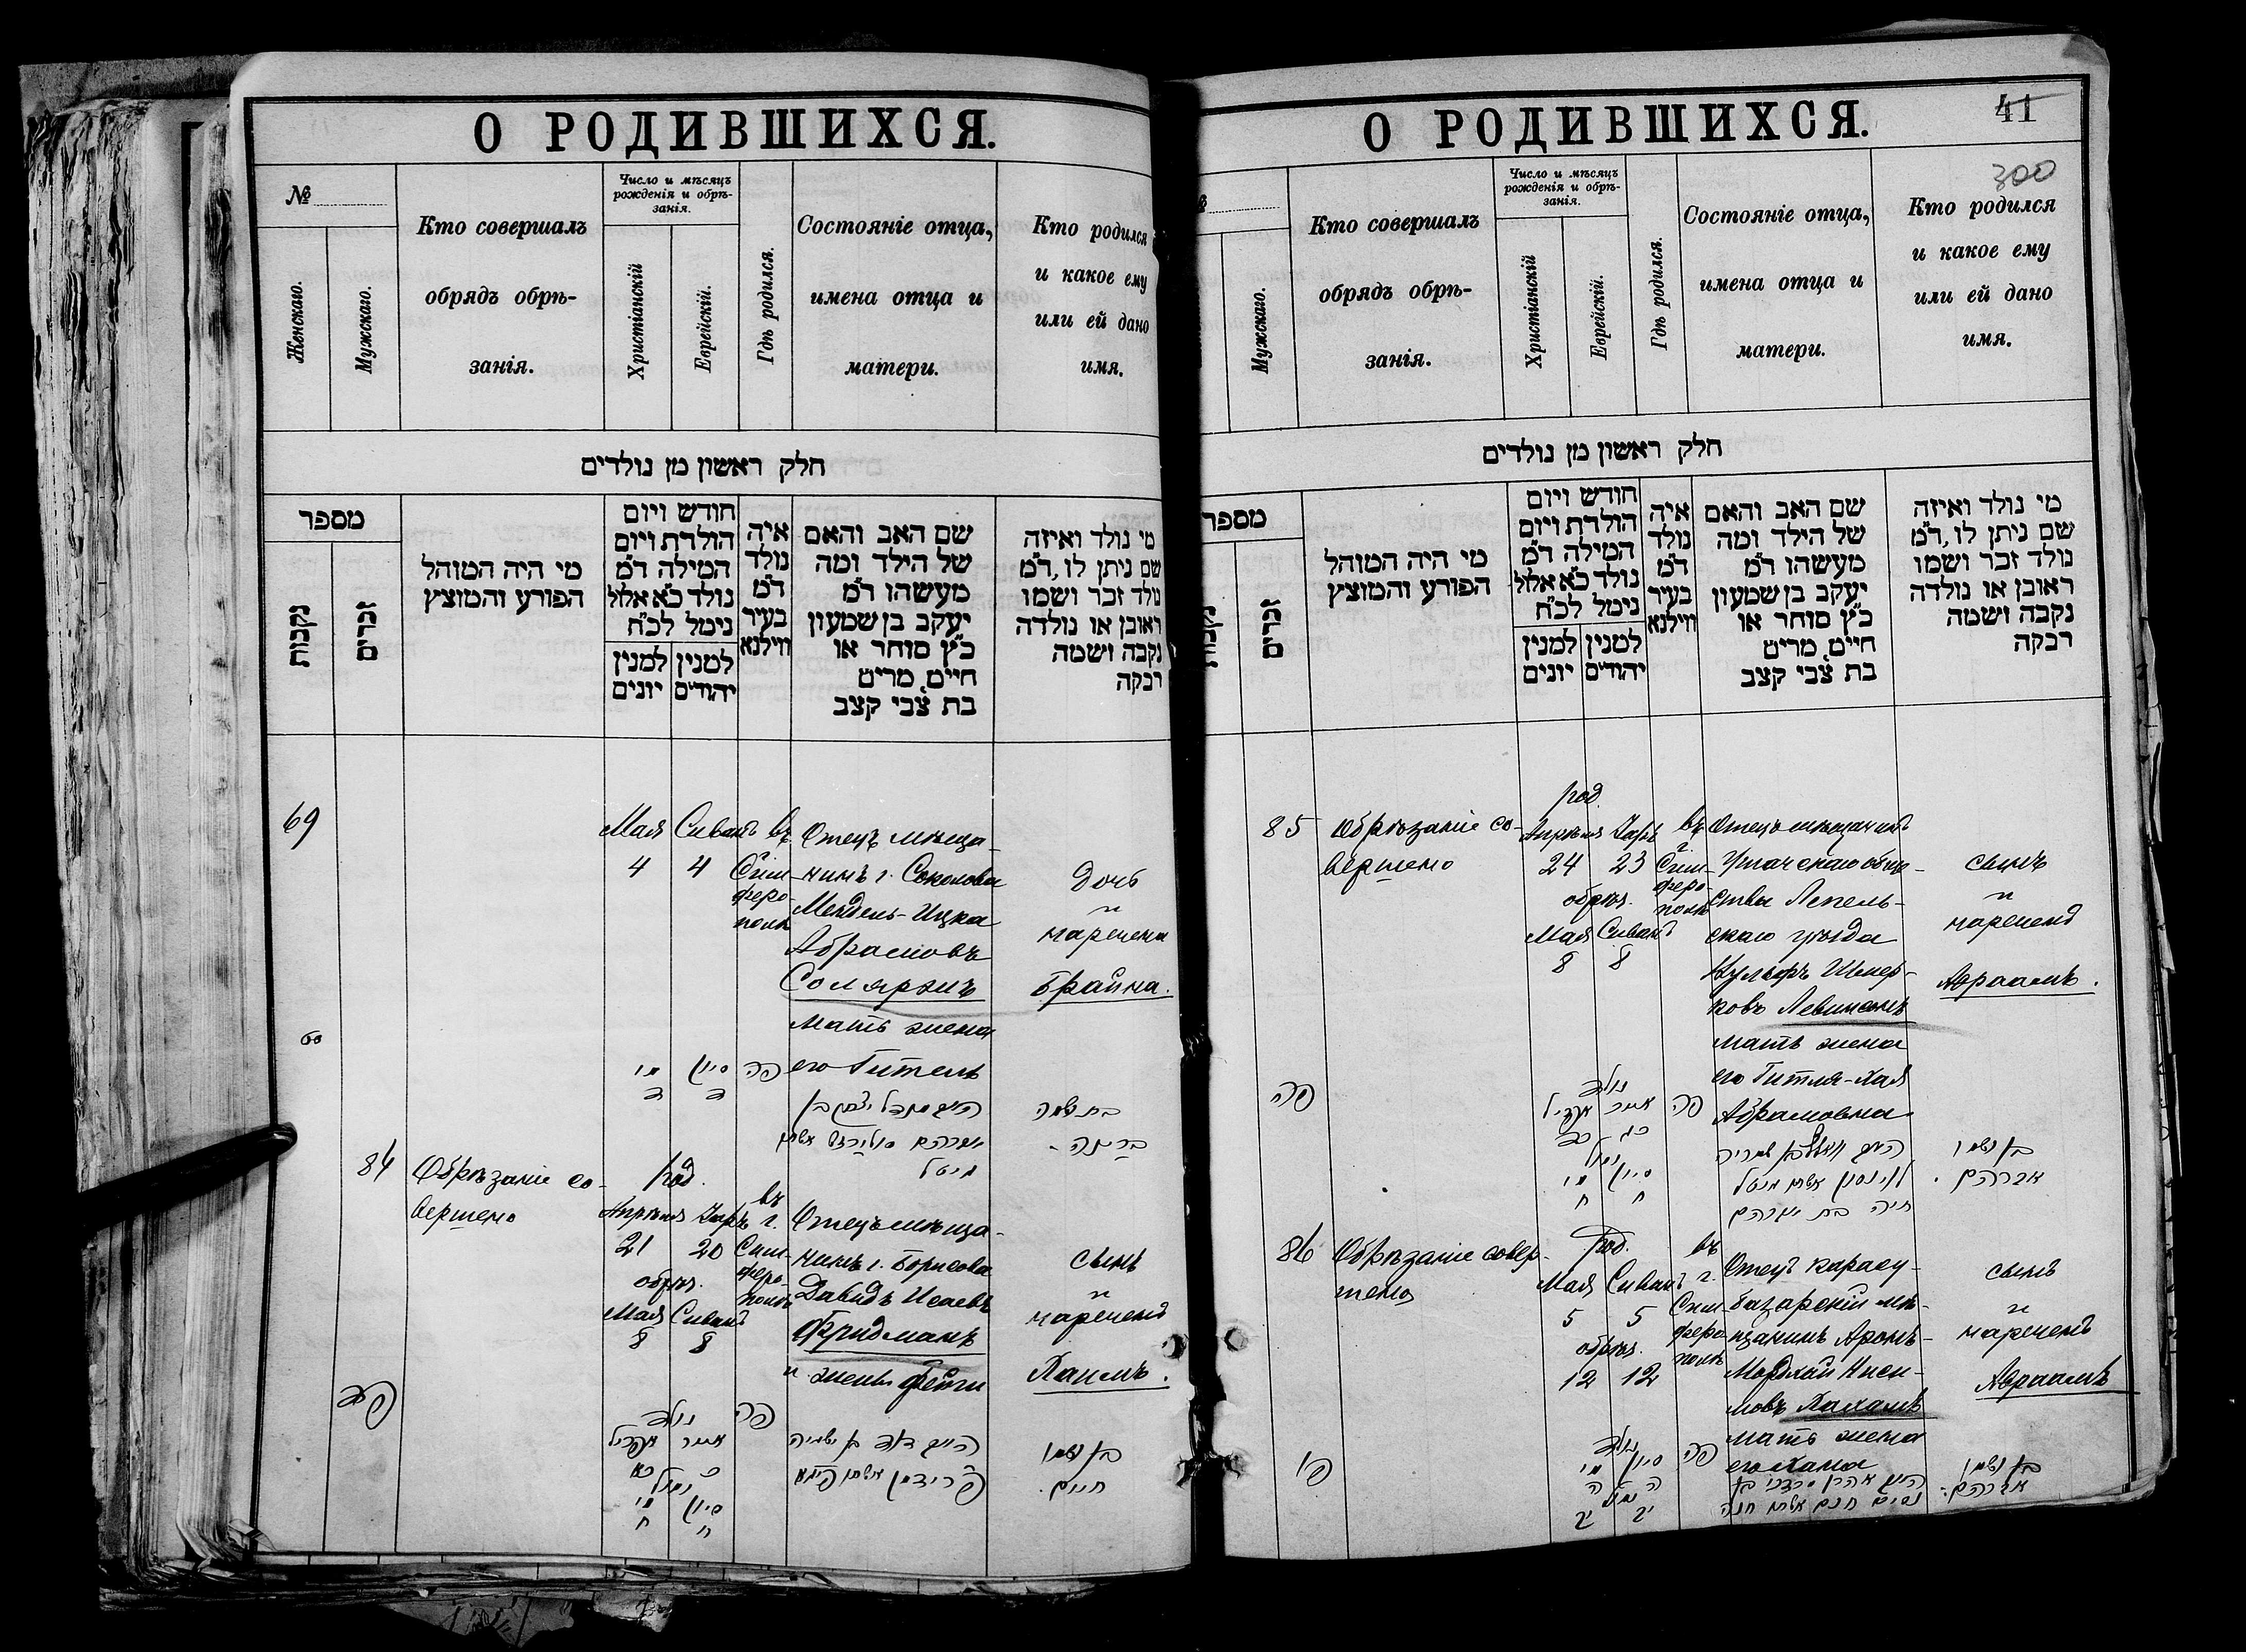 О РОДИВШИХСЯ.
№
Женскаго.
Мужскаго.
Кто совершалъ
обрядъ обрѣ-
занія.
Число и мѣсяцъ
рожденія и обрѣ-
занія.
Христіанскій
Еврейскій.
Гдѣ родился.
Состояніе отца,
имена отца и
матери.
Кто родился
и какое ему
или ей дано
имя.
חלק ראשון מן נולדים
מספר
נקבות
זכרים
מי היה המוהל
הפורע והמוצץ
חודש ויום
הולדת ויום
המילה ד״מ
נולד כ״א אלול
נימל לכ״ח
למנין יונים
למנין יהודים
איה
נולד
ד״מ
בעיר
ווילנא
שם האב והאם
של הילד ומה
מעשהו ד״מ
יעקב בן שמעון
כ״ץ סוחר או
חיים, מרים
בת צבי קצב
מי נולד ואיזה
שם ניתן לו, ד״מ
נולד זכר ושמו
ראובן או נולדה
נקבה ושמה
רבקה
69
Мая Сиванъ
4 4
въ
г.
Сим-
феро-
полѣ
Отецъ мѣща-
нинъ г. Соколова
Мендель-Ицка
Абрамовъ
мать жена
его Гитель
Дочь
и
наречена
Брайна.
סיון
פה
בת שמה
בריינה
84
Обрѣзаніе со-
вершено
род.
Апрѣля Іаръ
21 20
обрѣз.
Мая Сиванъ
8 8
въ
г.
Сим-
феро-
полѣ
Отецъ мѣща-
нинъ г. Борисова
Давидъ Исаевъ
Фридманъ
и жены Фейги
сынъ
и
нареченъ
Хаимъ.
פד
נולד
אייר אפריל
כ כא
נימול
סיון מיי
ח ח
פה
פרידמן
בן ושמו
חיים.
О РОДИВШИХСЯ.
41
300
Мужскаго.
Кто совершалъ
обрядъ обрѣ-
занія.
Число и мѣсяцъ
рожденія и обрѣ-
занія.
Христіанскій
Еврейскій.
Гдѣ родился.
Состояніе отца,
имена отца и
матери.
Кто родился
и какое ему
или ей дано
имя.
חלק ראשון מן נולדים
מספר
נקבות
זכרים
מי היה המוהל
הפורע והמוצץ
חודש ויום
הולדת ויום
המילה ד״מ
נולד כ״א אלול
נימל לכ״ח
למנין יונים
למנין יהודים
איה
נולד
ד״מ
בעיר
ווילנא
שם האב והאם
של הילד ומה
מעשהו ד״מ
יעקב בן שמעון
כ״ץ סוחר או
חיים, מרים
בת צבי קצב
מי נולד ואיזה
שם ניתן לו, ד״מ
נולד זכר ושמו
ראובן או נולדה
נקבה ושמה
רבקה
85
Обрѣзаніе со-
вершено
род.
Апрѣля Іаръ
24 23
обрѣз.
Мая Сиванъ
8 8
въ
г.
Сим-
феро-
полѣ
Отецъ мѣщанинъ
Ушачскаго обще-
ства Лепель-
скаго уѣзда
Левинсонъ
мать жена
его Гитля-Хая
Абрамовна
сынъ
и
нареченъ
Авраамъ.
פה
נולד
אייר אפריל
כג כד
נימול
סיון מיי
ח ח
פה
לוינסון אשתו גיטל
חיה בת אברהם
בן ושמו
אברהם.
86
Обрѣзаніе совер-
шено
род.
Мая Сиванъ
5 5
обрѣз.
12 12
въ
г.
Сим-
феро-
полѣ
Отецъ карасу-
базарскій мѣ-
щанинъ Аронъ-
Мордхай Ниси-
мовъ Хахамъ
мать жена
его Хана
сынъ
и
нареченъ
Авраамъ
פו
נולד
סיון מיי
ה ה
נימול
יב יב
פה
אהרן מרדכי בן
נסים חכם אשתו חנה
בן ושמו
אברהם.